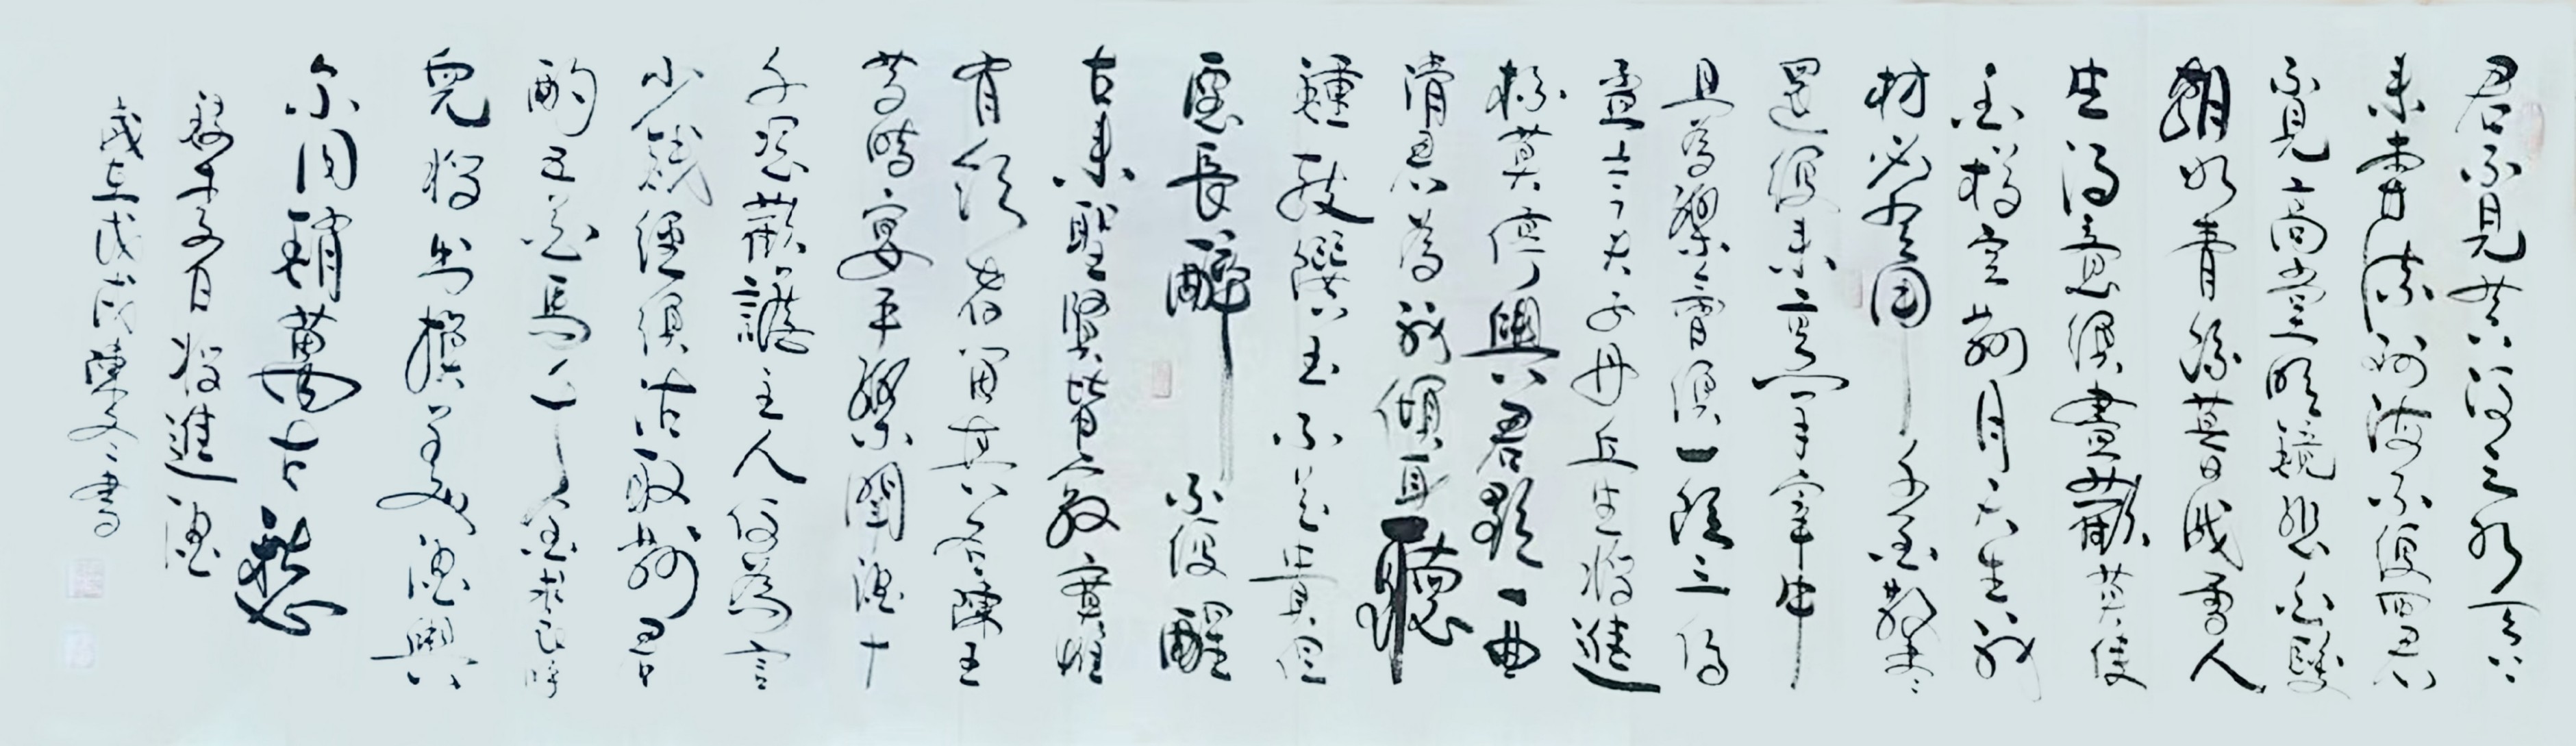 君不見黃河之水天上
來奔流到海不復回君
不見高堂明鏡悲白髮
朝如青絲暮成雪人
生得意須盡歡莫使
金樽空對月天生我
材必有用千金散盡
還復來烹羊宰牛
且為樂會須一飲三百
盃岑夫子丹丘生將進
杯莫停與君歌一曲
請君為我傾耳聽
鐘鼓饌玉不足貴但
願長醉不復醒
古來聖賢皆寂寞惟
有飲者留其名陳王
昔時宴平樂鬪酒十
千恣歡謔主人何為言
少錢徑須沽取對君
酌五花馬千金裘呼
兒將出換美酒與
爾同銷萬古愁
李白將進酒
歲在戊戌陳文書